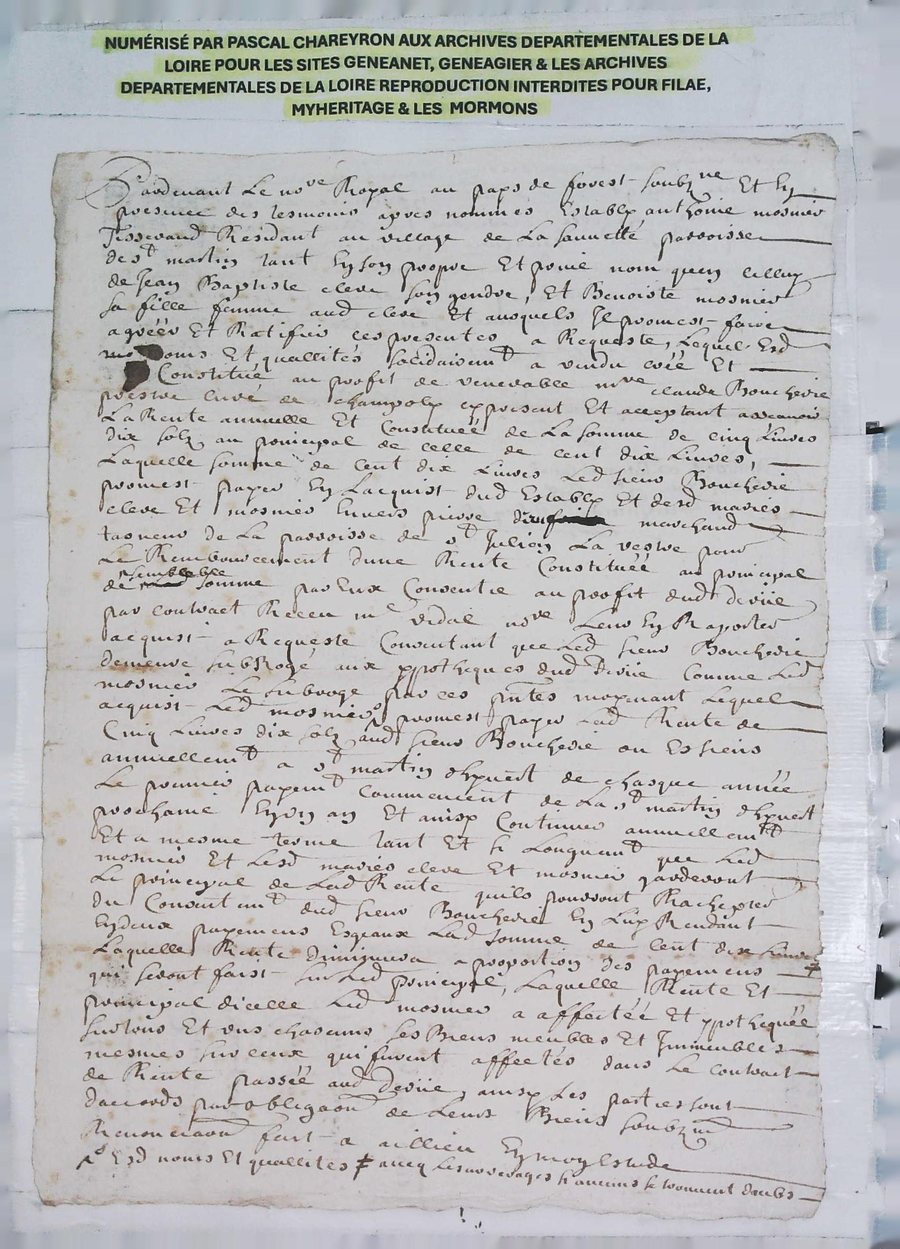 NUMÉRISÉ PAR PASCAL CHAREYRON AUX ARCHIVES DEPARTEMENTALES DE LA
LOIRE POUR LES SITES GENEANET, GENEAGIER & LES ARCHIVES
DEPARTEMENTALES DE LA LOIRE REPRODUCTION INTERDITES POUR FILAE,
MYHERITAGE & LES MORMONS
Pardevant Le no.re Royal au pays de forest soubz.ne Et En
presence des tesmoins apres nommes Establÿ anthoine mosnier
Tisserand Residant au village de La parroisse
de s.t martin tant En son propre Et privé nom quen celluy
de Jean Baptiste eleve son gendre, Et Benoiste mosnier
sa fille femme aud eleve Et ausquels Il promest faire
agréer Et Ratifier ces presentes a Requeste, Lequel Esd
noms Et quallités solidairem.t a vendu créé Et
Constituée au proffit de venerable m.re claude Boucherie
prestre curé de champoly cy present Et acceptant assavoir
La Rente annuelle Et Constituée de La somme de cinq Livres
dix solz au principal de celle de cent dix Livres,
Laquelle somme de cent dix Livres Led sieur Boucherie
promest payer En Lacquist dud Establÿ Et desd mariés
eleve Et mosnier Envers pierre marchand
tasneur de La parroisse de s.t Julien La vestre pour
Le Rembourcement dune Rente Constituée au principal
de semblable somme par Eux Consentie au proffit dud
par contract Receu m.e vidal no.re Leur En Rapporter
acquist a Requeste Consentant que Led sieur Boucherie
demeure subrogé aux ypotheques dud Comme Led
mosnier Le subroge par ces p.ntes moyenant Lequel
acquist Led mosnier promest payer Lad Rente de
Cinq Livres dix solz aud sieur Boucherie ou Es siens
annuellem.t a s.t martin dhyvert de chasque année
Le premier payem.t Commencent de La s.t martin dhyvert
prochaine En un an Et ainsy Continuer annuellem.t
Et a mesme terme tant Et si Longuem.t que Led
mosnier Et Lesd mariés eleve Et mosnier garderont
Le principal de Lad Rente quils pourront Rachepter
du Consentem.t dud sieur Boucherie En Luy Rendant
En deux payemens Esgeaux Lad somme de cent dix Livres
Laquelle Rente diminuera a proportion des payemens
qui seront faist sur Led principal, Laquelle Rente Et
principal dicelle Led mosnier a affectée Et ypothequée
sur tous Et uns chascuns ses Biens meubles Et Immeubles
mesmes sur ceux qui furent affectés dans Le contract
de Rente passée aud ainsy Les parties sont
daccords par obliga.on de Leurs Biens soubz.on
Renoncia.on fait a aillieu En mon Estude
Esd noms Et quallites avecq Les